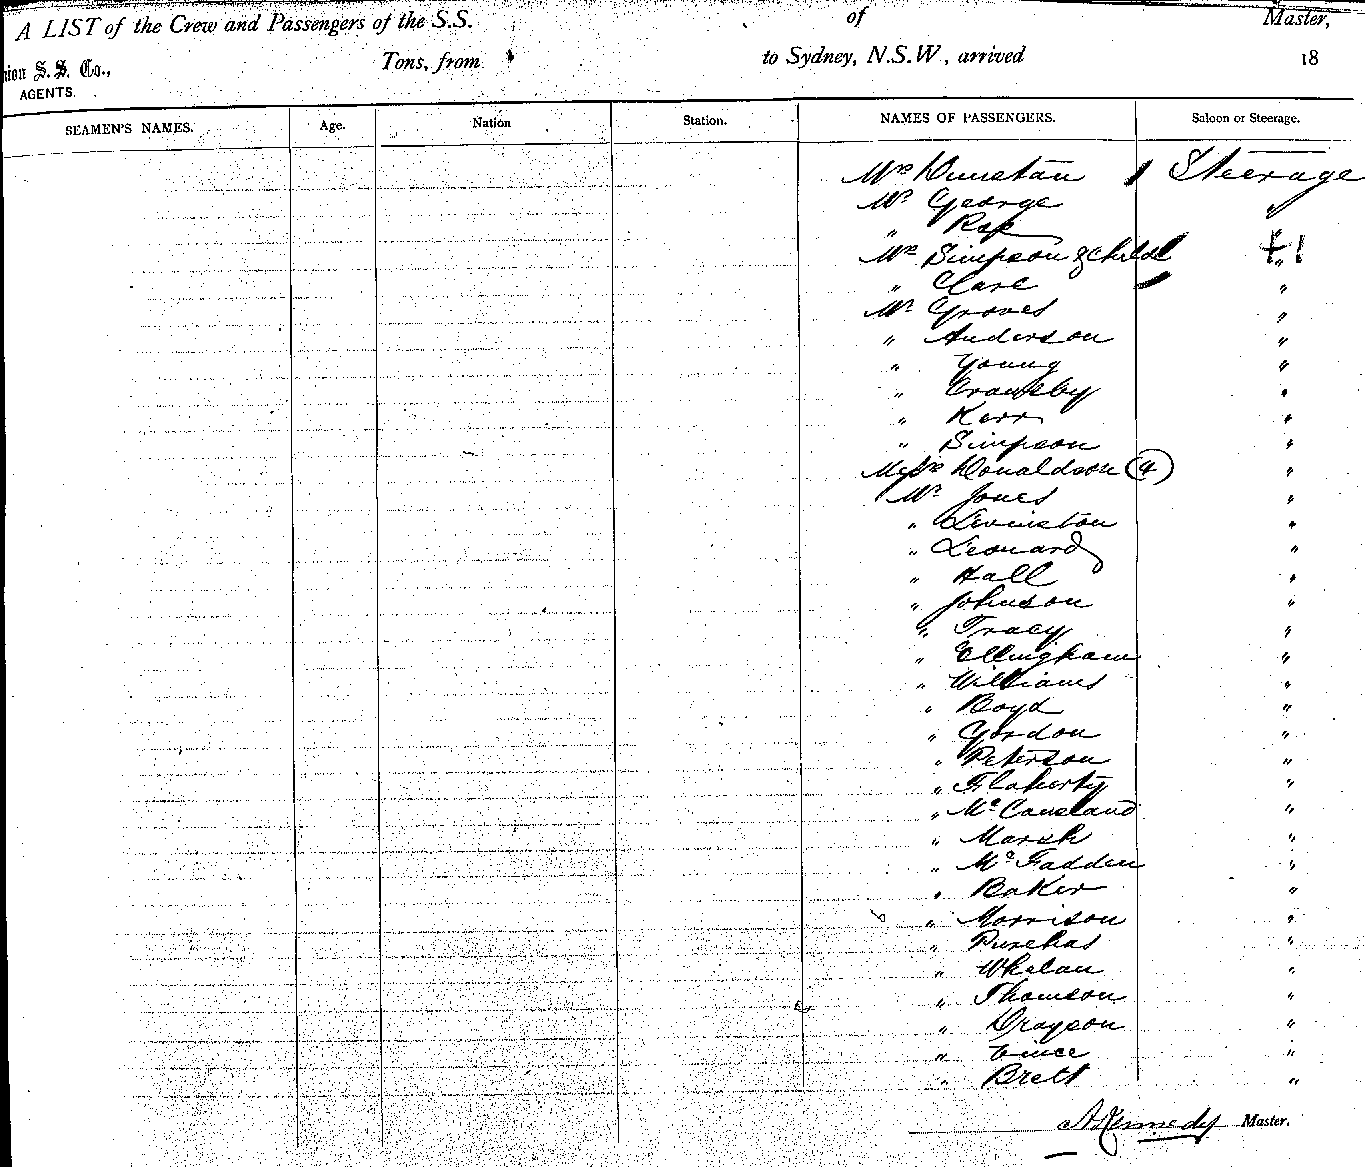 A LIST of the Crew and Passengers of the S.S. of Master,
nion S. S. Co., Tons, from to Sydney, N.S.W, arrived 18
AGENTS.
SEAMEN'S NAMES. Age. Nation Station. NAMES OF PASSENGERS. Saloon or Steerage.
Mrs Dunstan 1 Steerage
Mr George "
"
Mrs Simpson & child + 1 "
" Clare "
Mr Groves "
" Anderson "
" Young "
" "
" Kerr "
" Simpson "
Donaldson (4) "
Mr Jones "
" Levinston "
" Leonard "
" Hall "
" Johnson "
" Tracy "
" Ellingham "
" Williams "
" Boyd "
" Gordon "
" Peterson "
" Flaherty "
" McCausland "
" Marsh "
" McFadden "
" Baker "
" Morrison "
" Purchas "
" Whelan "
" Thomson "
" Drayson "
" Vince "
" Brett "
A Kennedy Master.